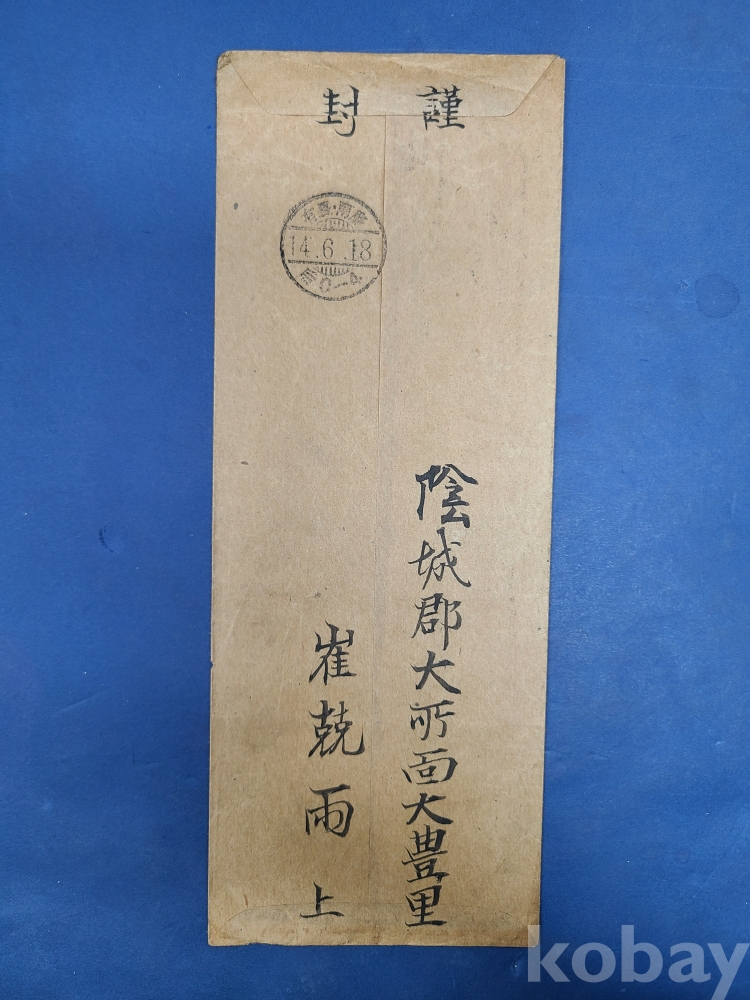 謹封
14.6.18
陰城郡大所面大豊里
崔兢雨上
kobay